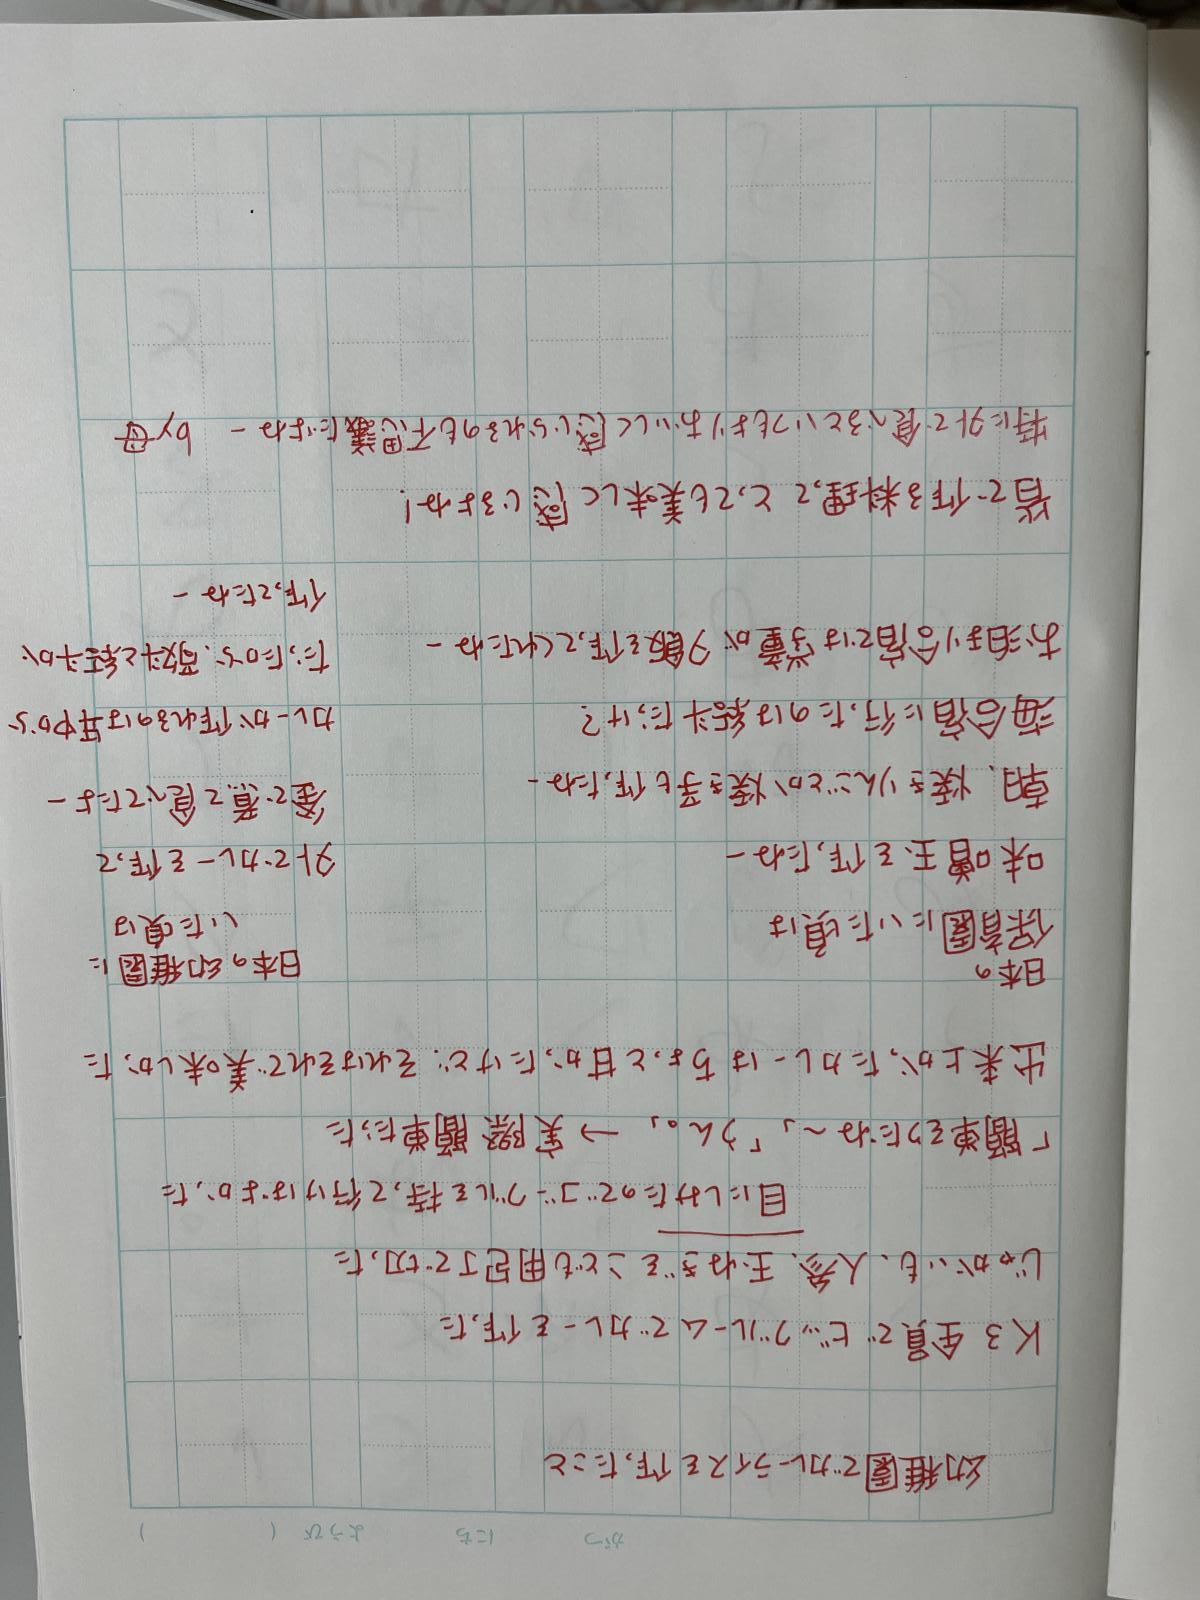 がつ にち ようび ( )
幼稚園でカレーライスを作ったこと
K3 全員でビッグルームでカレーを作った
じゃがいも、人参、玉ねぎをこども用包丁で切った
目にしみたのでゴーグルを持って行けばよかった
「簡単そうだね〜」「うん。」→実際簡単だった
出来上がったカレーはちょっと甘かったけど、それはそれで美味しかった
日本の
保育園にいた頃は
味噌玉を作ったねー
朝、焼きりんごとか焼き芋も作ったねー
海合宿に行ったのは結斗だっけ?
お泊まり合宿では学童が夕飯を作ってくれたねー
日本の幼稚園に
いた頃は
外でカレーを作って
釜で煮て食べてたよー
カレーが作れるのは年中から
だったから、
と結斗が
作ってたねー
皆で作る料理って とっても美味しく感じるよね!
特に外で食べるといつもよりおいしく感じられるのも不思議だよねー by 母